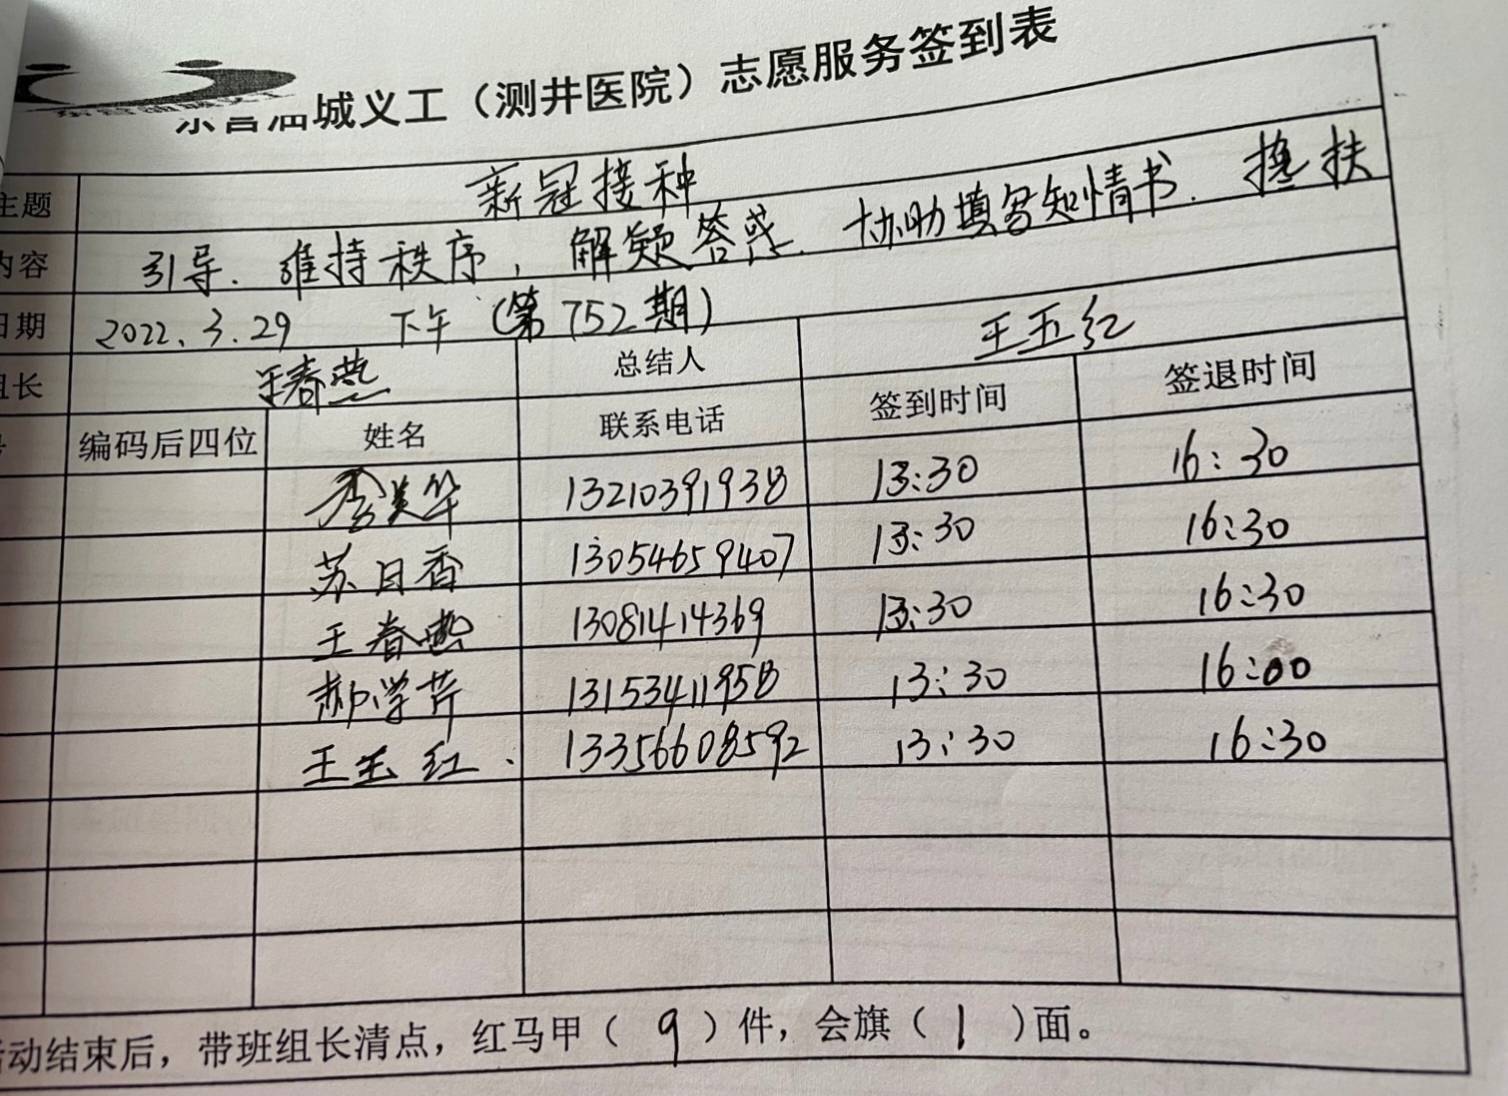 东营油城义工（测井医院）志愿服务签到表
主题 新冠接种
内容 引导．维持秩序，解疑答惑．协助填写知情书．搀扶
日期 2022.3.29 下午（第752期）
组长 王春燕 总结人 王玉红
号 编码后四位 姓名 联系电话 签到时间 签退时间
李美华 13210391938 13:30 16:30
苏日香 13054659407 13:30 16:30
王春燕 13081414369 13:30 16:30
郝学芹 13153411958 13:30 16:00
王玉红. 13356608592 13:30 16:30
活动结束后，带班组长清点，红马甲（ 9 ）件，会旗（ 1 ）面。